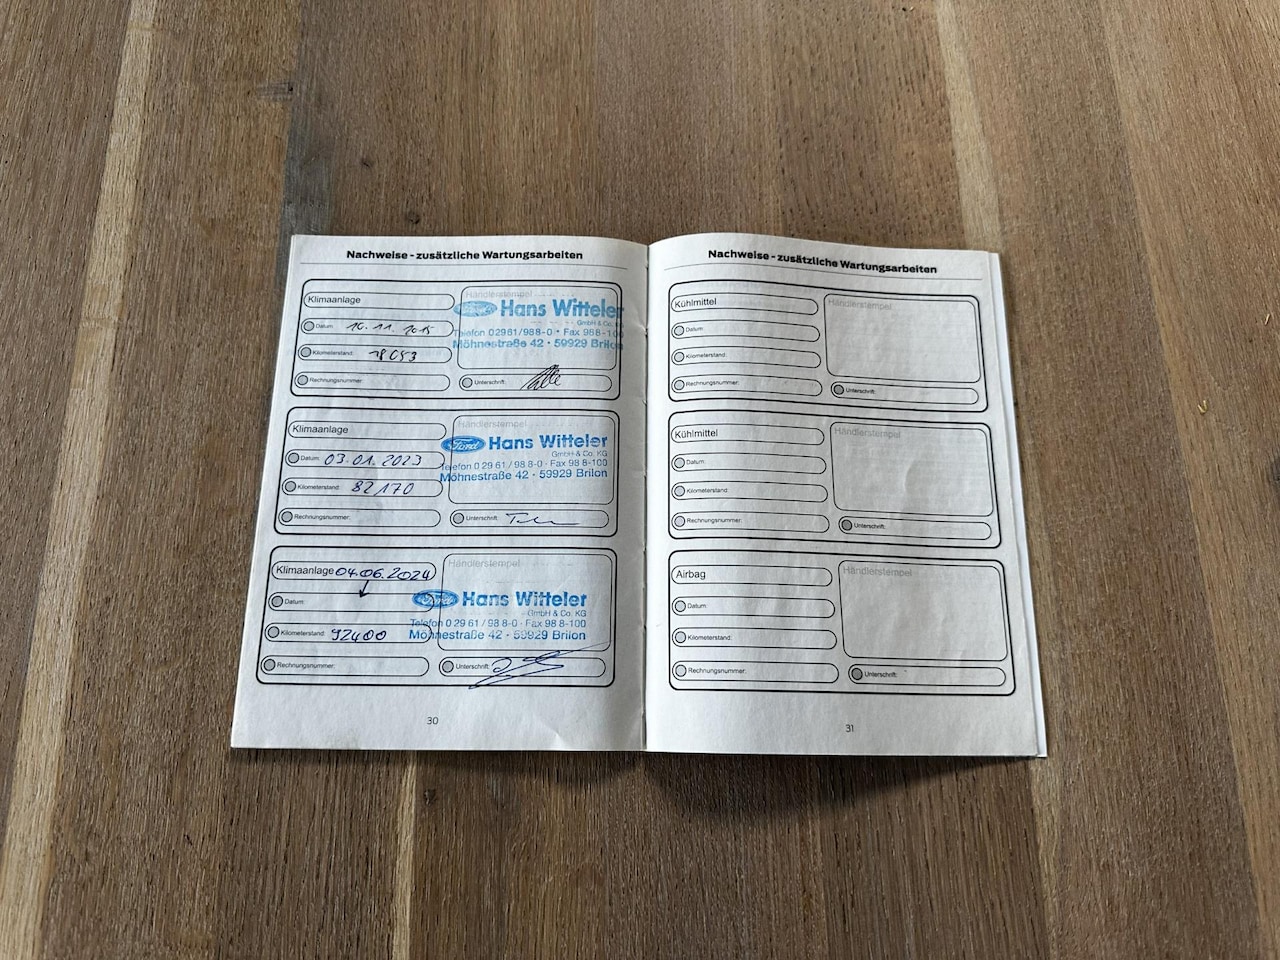 Nachweise - zusätzliche Wartungsarbeiten
Klimaanlage
Datum: 10.11.2015
Kilometerstand: 18053
Rechnungsnummer:
Händlerstempel
Ford Hans Witteler
GmbH & Co. KG
Telefon 02961/988-0 • Fax 988-100
Möhnestraße 42 • 59929 Brilon
Unterschrift:
Klimaanlage
Datum: 03.01.2023
Kilometerstand: 82170
Rechnungsnummer:
Händlerstempel
Ford Hans Witteler
GmbH & Co. KG
Telefon 0 29 61 / 98 8-0 · Fax 98 8-100
Möhnestraße 42 - 59929 Brilon
Unterschrift:
Klimaanlage 04.06.2024
Datum:
Kilometerstand: 92400
Rechnungsnummer:
Händlerstempel
Ford Hans Witteler
GmbH & Co. KG
Telefon 0 29 61 / 98 8-0 · Fax 98 8-100
Möhnestraße 42 - 59929 Brilon
Unterschrift:
30
Nachweise - zusätzliche Wartungsarbeiten
Kühlmittel
Datum:
Kilometerstand:
Rechnungsnummer:
Händlerstempel
Unterschrift:
Kühlmittel
Datum:
Kilometerstand:
Rechnungsnummer:
Händlerstempel
Unterschrift:
Airbag
Datum:
Kilometerstand:
Rechnungsnummer:
Händlerstempel
Unterschrift:
31